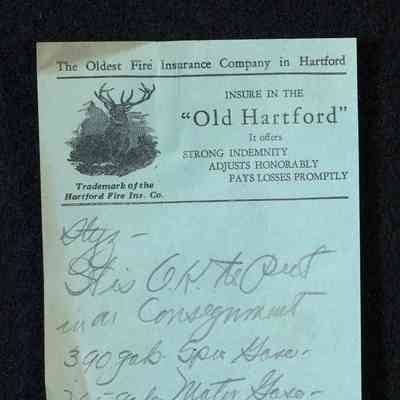 The Oldest Fire Insurance Company in Hartford
INSURE IN THE
"Old Hartford"
It offers
STRONG INDEMNITY
ADJUSTS HONORABLY
PAYS LOSSES PROMPTLY
Trademark of the
Hartford Fire Ins. Co.
Its O.K. to Put
in on Consignment
390 gals Gaso-
gals Motor Gaso-